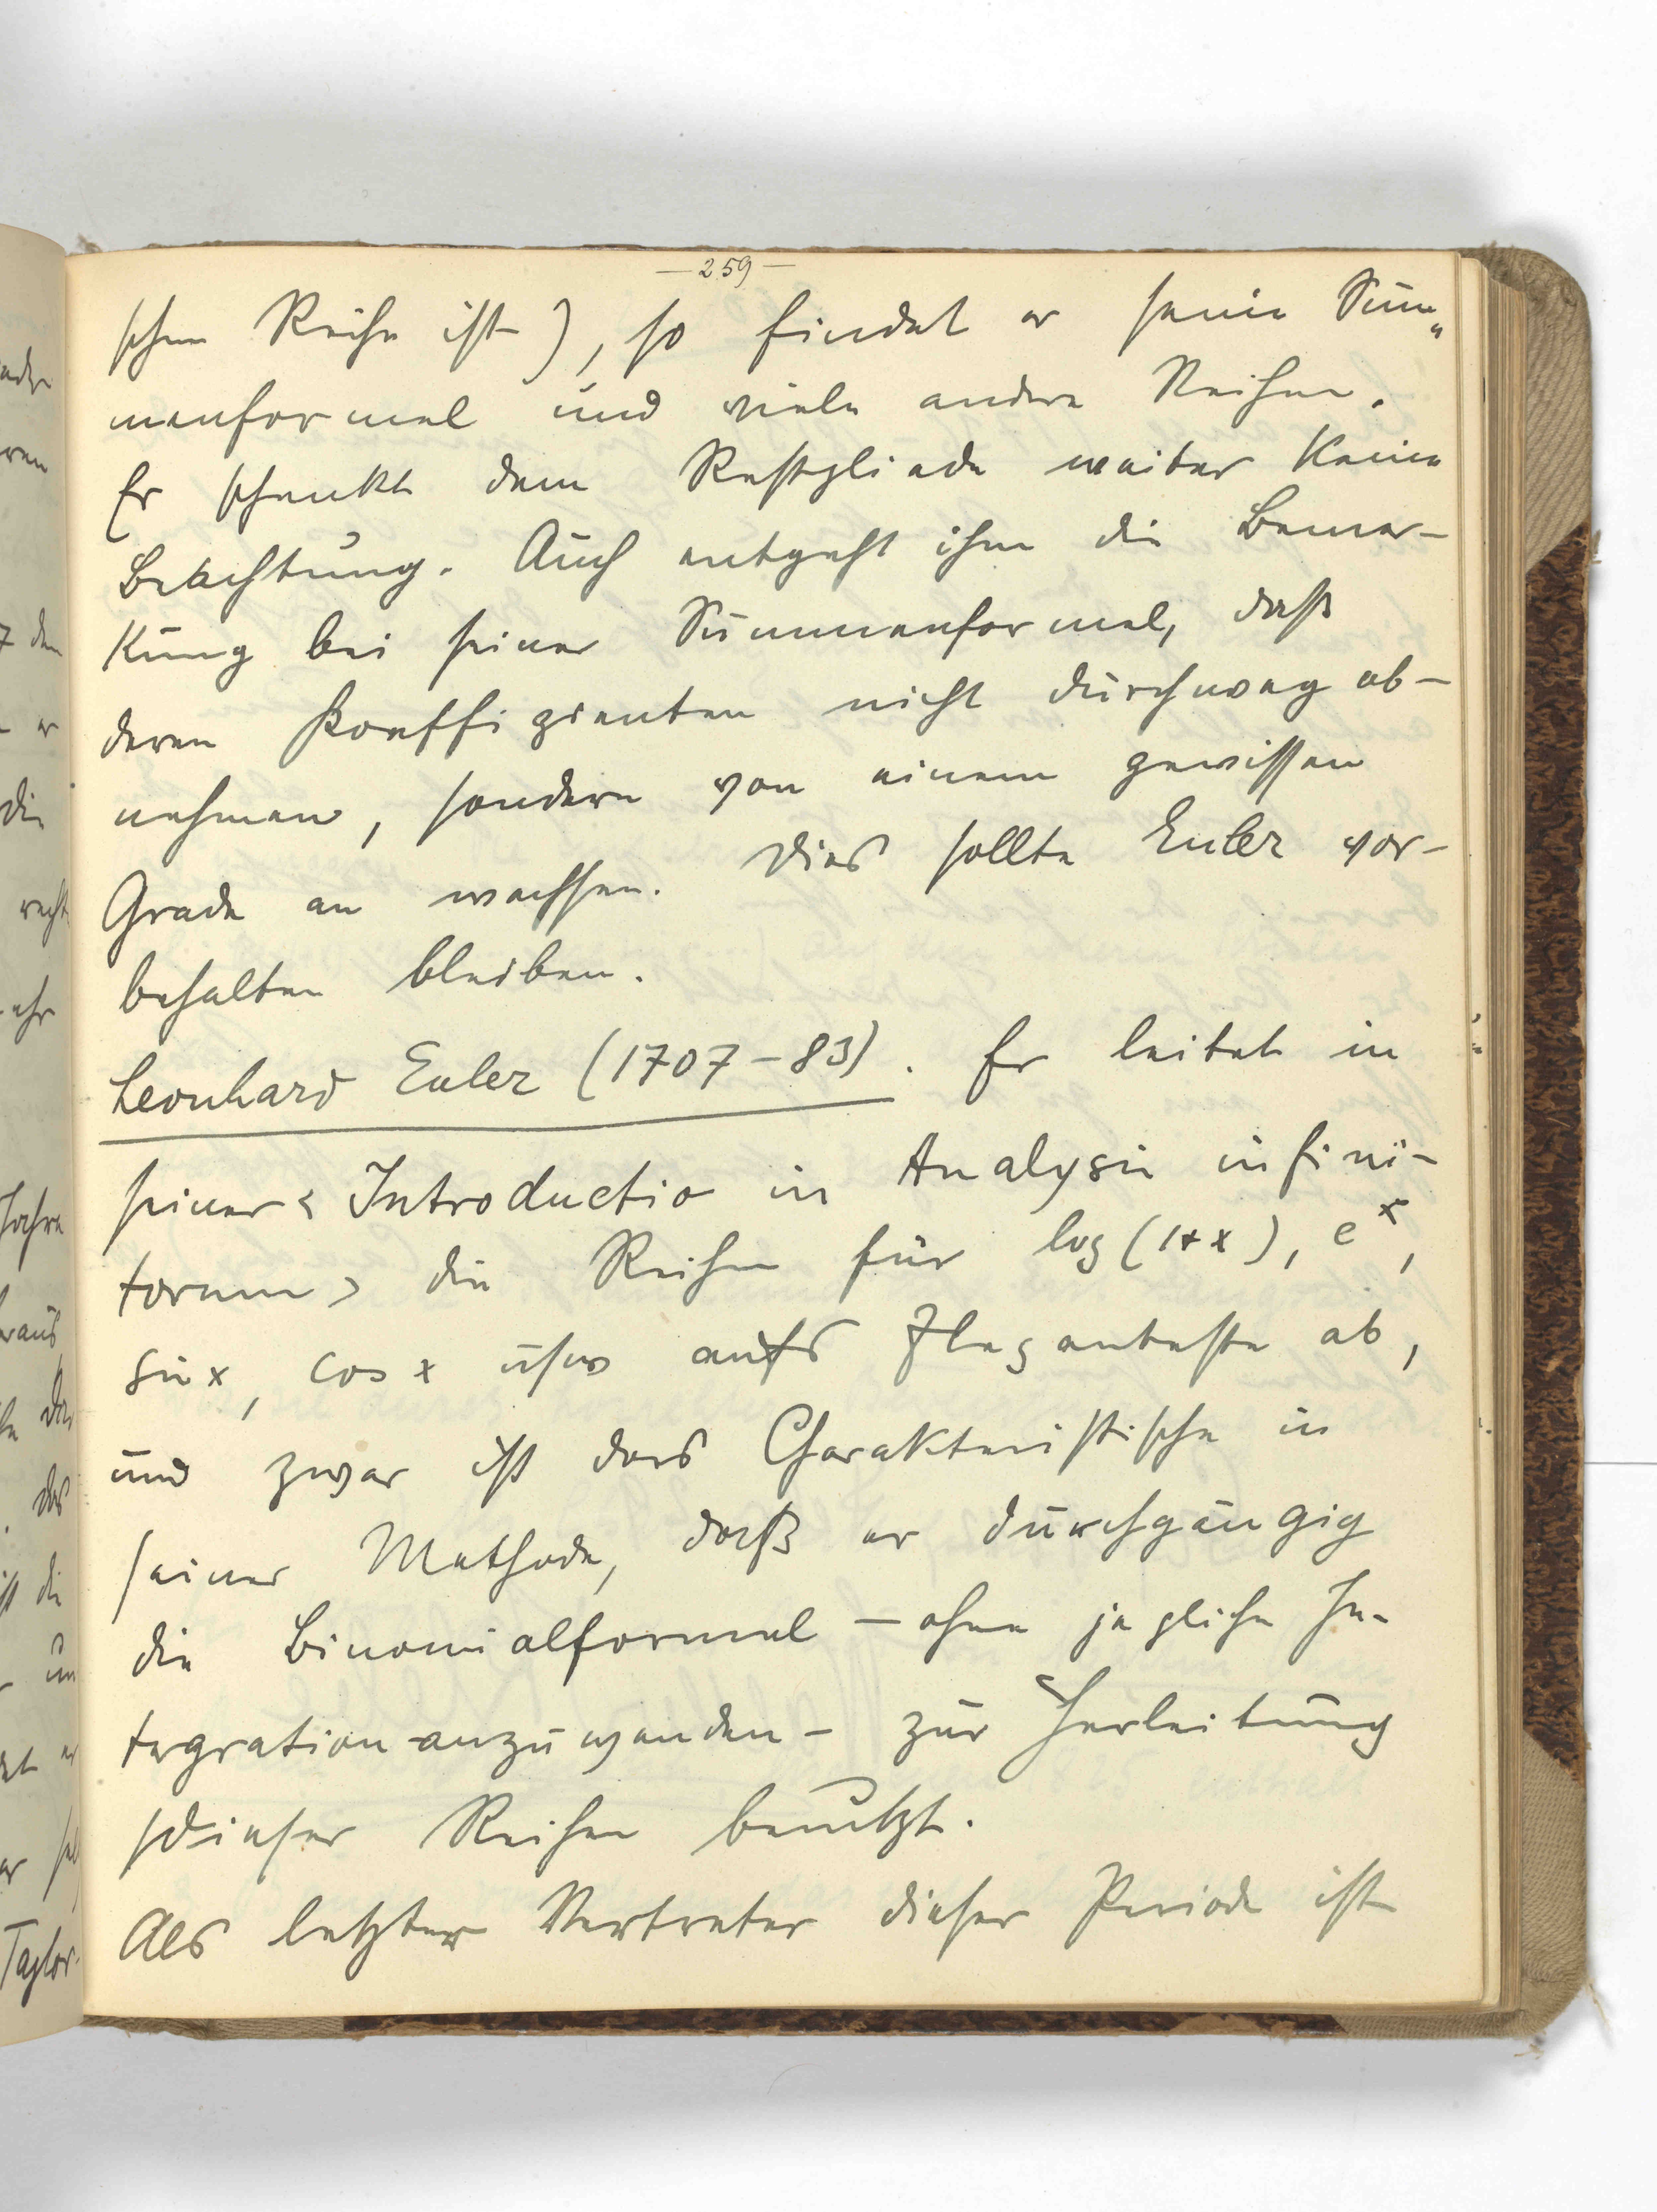 — 259 —
schen Reihe ist), so findet er seine Sum„
menformel und viele andere Reihen.
Er schenkt dem Restgliede weiter keine
Beachtung. Auch entgeht ihm die Bemer-
kung bei seiner Summenformel, daß
deren Koeffizienten nicht durchweg ab-
nehmen, sondern von einem gewissen
Grade an wachsen. Dies sollte Euler vor-
behalten bleiben.
Leonhard Euler (1707–83). Er leitet in
seiner < Introductio in Analysin infini-
torum > die Reihen für log(1+x), e^x,
sin x, cos x usw aufs Eleganteste ab,
und zwar ist das Charakteristische in
seiner Methode, daß er durchgängig
die Binomialformel – ohne jegliche In-
tegration anzuwenden – zur Herleitung
dieser Reihen benutzt.
Als letzter Vertreter dieser Periode ist